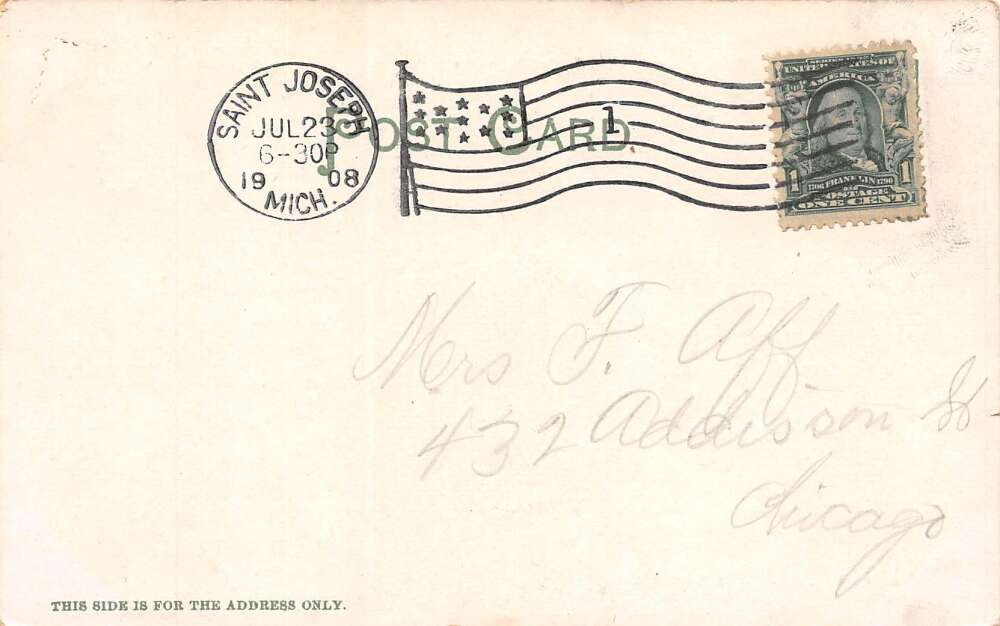 SAINT JOSEPH
JUL 23
6-30P
19 08
MICH.
POST CARD.
1
SERIES 1902
UNITED STATES OF
AMERICA
1 1706 FRANKLIN 1790 1
POSTAGE
ONE CENT
Mrs F. Aff
432 Addisson St
Chicago
THIS SIDE IS FOR THE ADDRESS ONLY.